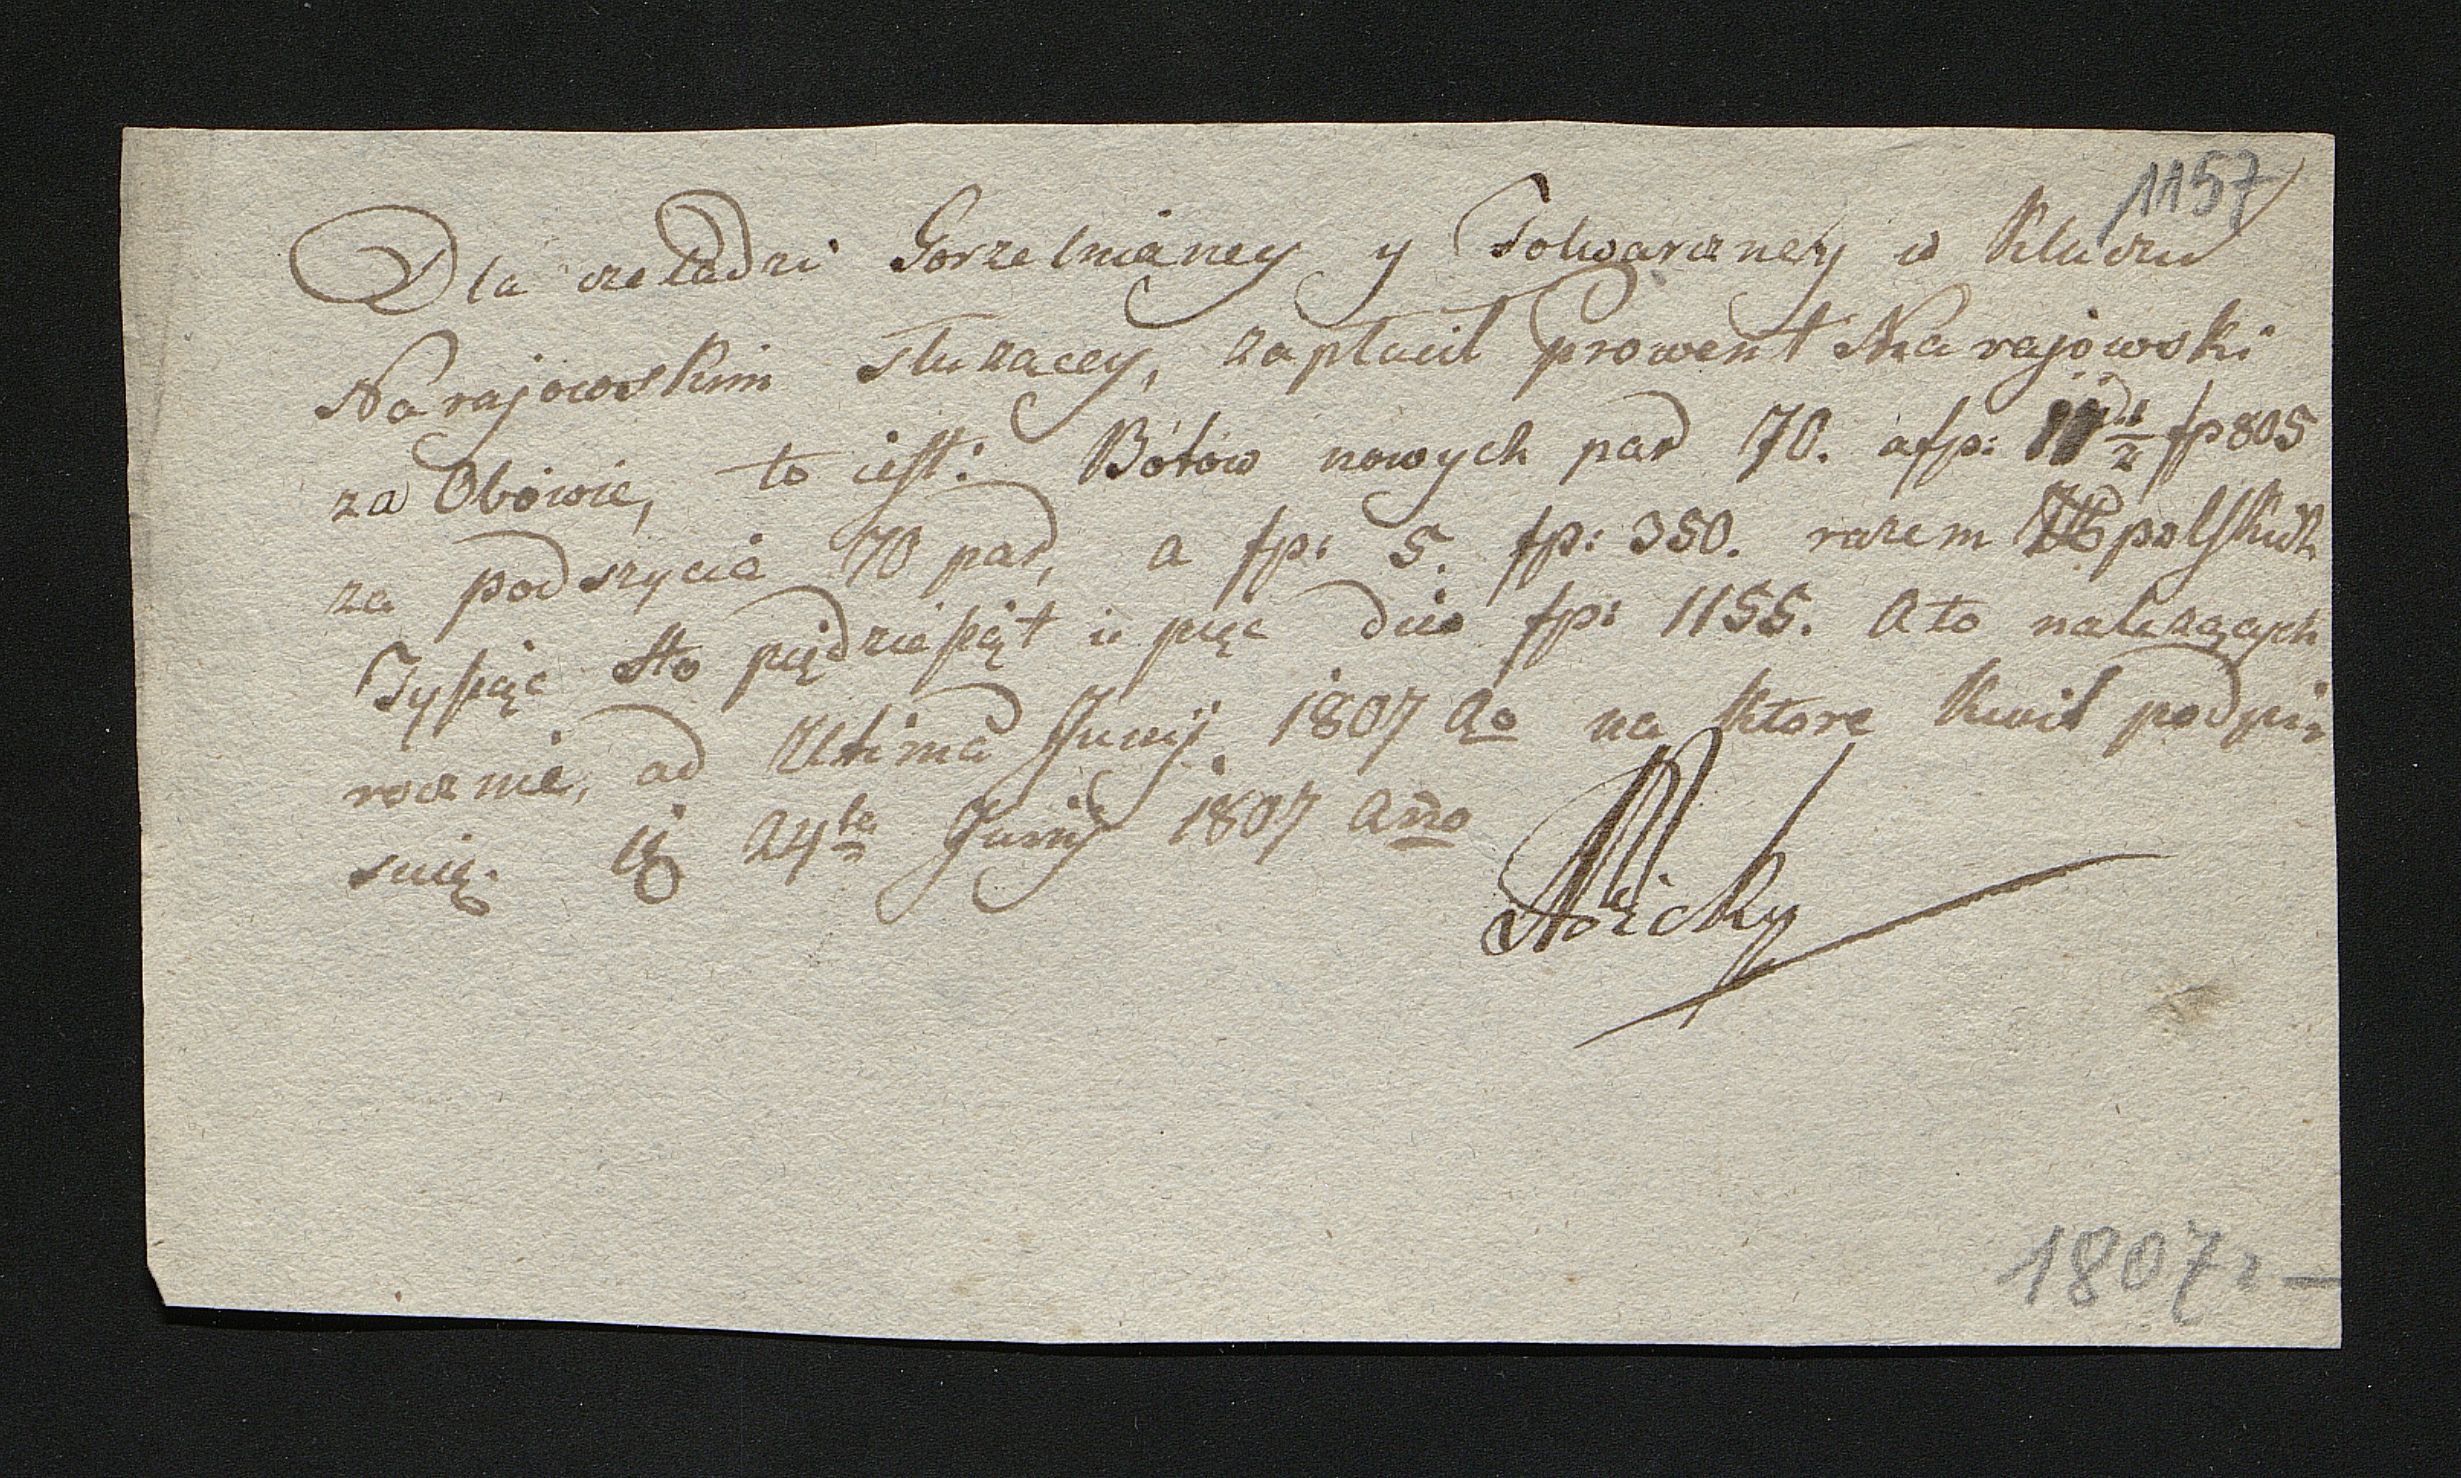 1157
Dla czeladzi Gorzelnianey y Folwarczney w Kluczu
Narajowskim służacey, zapłacił prowent Narajowski
za Obówie, to iest: Bótów nowych par 70. a fp: 11 1/2 fp 805
za podszycie 70 par, a fp: 5. fp: 350. razem polskich
Tysiąc sto piędziesiąt i pięc dico fp: 1155. A to należących
rocznie, od Ultima Junij 1807 Ao na ktore kwit podpi-
suię. 24ta Junij 1807 Anno
1807.-